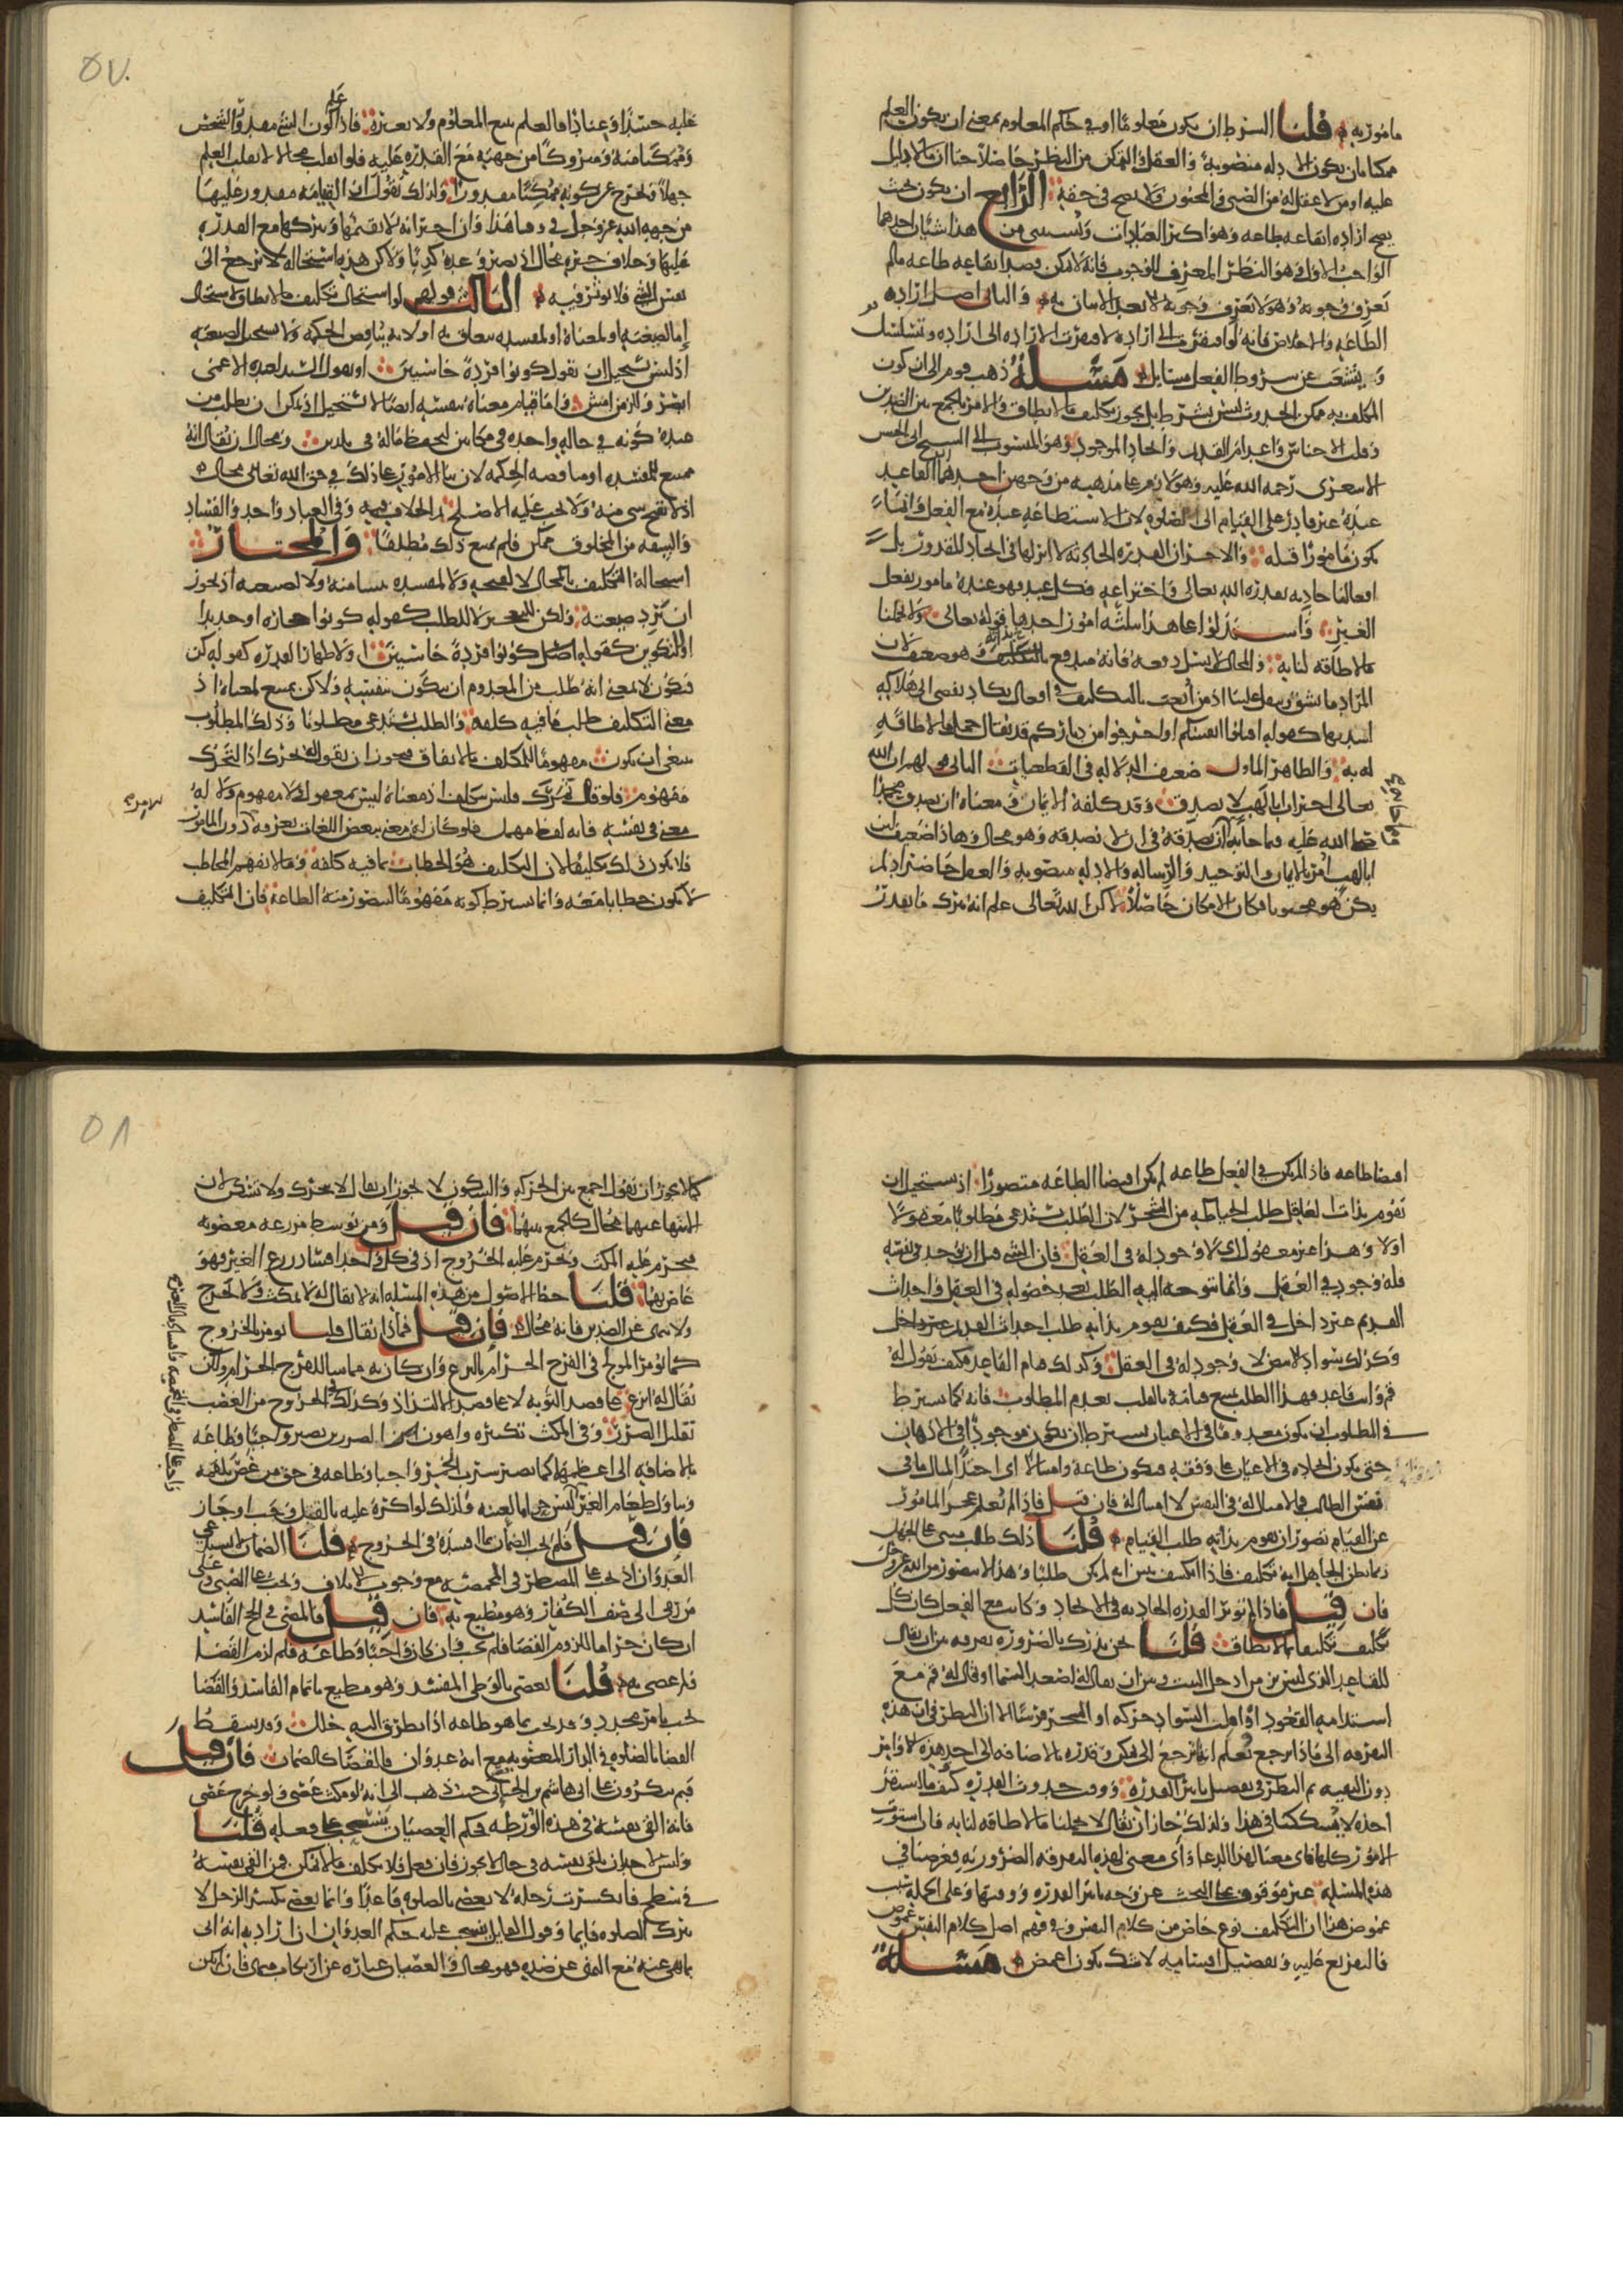 مأمور به قلنا الشرط ان يكون معلوما او في حكم المعلوم بمعنى ان يكون العلم
ممكنا بان يكون الادله منصوبة والعقل والتمكن من النظر حاصلا حتى ان ما لا دليل
عليه او من لا عقل له من الصبي والمجنون ولا يصح في حقه الرابع ان يكون بحيث
يصح ارادة ايقاعه طاعه وهو اكثر العبادات ويستثنى من هذا شيئان احدهما
الواجب الاول وهو النظر المعرف للوجوب فانه لا يمكن قصد ايقاعه طاعه ما لم
يعرف وجوبه وهو لا يعرف وجوبه الا بعد الاتيان به والثاني اصل ارادة
الطاعه والاخلاص فانه لو افتقرت الى اراده لافتقرت الاراده الى اراده وتسلسل
ويتشعب عن شروط الفعل مسايل مسلة ذهب قوم الى ان كون
المكلف به ممكن الحدوث ليس بشرط بل يجوز تكليف ما لا يطاق والامر بالجمع بين الضدين
وقلب الاجناس واعدام القديم وايجاد الموجود وهو المنسوب الى الشيخ ابي الحسن
الاشعري رحمه الله عليه وهو لازم على مذهبه من وجهين احدهما القاعد
عنده غير قادر على القيام الى الصلوه لان الاستطاعه عنده مع الفعل وانما
يكون مامورا قبله والاخر ان القدره الحادثه لا اثر لها في ايجاد المقدور بل
افعالنا حادثه بقدرة الله تعالى واختراعه فكل عبد فهو عنده مامور بفعل
الغير واستدلوا على هذا بثلثه امور احدها قوله تعالى ولا تحملنا
ما لا طاقه لنا به والمحال لا يسل دفعه فانه مندفع بذاته وهو ضعيف لان
المراد ما يشق ويثقل علينا اذ من اتعب بالتكليف في افعال يكاد يفضي الى هلاكه
لشدتها كقوله اقتلوا انفسكم او اخرجوا من دياركم قد يقال حمل ما لا طاقه
له به والظاهر الماول ضعيف الدلاله في القطعيات الثاني قولهم ان الله
تعالى اخبر ان ابا لهب لا يصدق وقد كلفه الايمان ومعناه ان يصدق محمدا
صلى الله عليه فيما جا به ان يصدقه في ان لا يصدقه وهو محال وهاذا ضعيف لان
ابا لهب امر بالايمان والتوحيد والرساله والادله منصوبه والعقل حاضر اذ لم
يكن هو مجنونا فكان الامكان حاصلا لكن الله تعالى علم انه يترك ما يقدر
عليه حسدا وعنادا فالعلم يتبع المعلوم ولا يغيره فاذا علم كون الشي مقدورا لشخص
وممكنا منه ومتروكا من جهته مع القدره عليه فلو انقلب محالا لانقلب العلم
جهلا ويخرج عن كونه ممكنا مقدورا ولذلك نقول ان القيامه مقدور عليها
من جهه الله عز وجل في وقتنا هذا وان اخبر انه لا يقيمها ويتركها مع القدره
عليها وخلاف خبره محال اذ يصير وعده كذبا ولاكن هذه استحاله لا ترجع الى
نفس الشي فلا تؤثر فيه الثالث قولهم لو استحال تكليف ما لا يطاق لاستحال
إما لصيغته او لمعناه او لمفسده تتعلق به او لانه يناقض الحكمه ولا يستحيل لصيغته
اذ ليس يستحيل ان نقول كونوا قردة خاسئين او يقول السيد لعبده الاعمى
ابصر وللزمن امش واما قيام معناه بنفسه ايضا لا يستحيل اذ يمكن ان يطلب من
عبده كونه في حاله واحده في مكانين ليحفظ ماله في بلدين ومحال ان يقال انه
ممتنع للمفسده او مناقضه الحكمه لان بنا الامور على ذلك في حق الله تعالى محال
اذ لا يقبح شي منه ولا يجب عليه الاصلح ثم الخلاف فيه وفي العباد واحد والفساد
والسفه من المخلوق ممكن فلم يمتنع ذلك مطلقا والمختار
استحالة التكليف بالمحال لا لقبحه ولا لمفسده تنشا منه ولا لصيغته اذ يجوز
ان ترد صيغته ولكن للتعجيز لا للطلب كقوله كونوا حجاره او حديدا
او للتكوين كقوله كونوا قردة خاسئين او لاظهار القدره كقوله كن
فيكون لا بمعنى انه طلب من المعدوم ان يتكون بنفسه ولاكن يمتنع لمعناه اذ
معنى التكليف طلب ما فيه كلفه والطلب يستدعي مطلوبا وذلك المطلوب
ينبغي ان يكون مفهوما للمكلف بالاتفاق فيجوز ان يقول تحرك اذ التحرك
مفهوم فلو قال تمرك فليس بتكليف اذ معناه ليس بمعقول ولا مفهوم ولا له
معنى في نفسه فانه لفظ مهمل فلو كان له معنى ببعض اللغات يعرفه دون المامور
فلا يكون ذلك تكليفا لان التكليف هو الخطاب بما فيه كلفه وما لا يفهمه المخاطب
لا يكون خطابا معه وانما يشترط كونه مفهوما ليتصور منه الطاعه فان التكليف
اقتضا طاعه فاذا لم يكن في الفعل طاعه لم يكن اقتضا الطاعه متصورا اذ يستحيل ان
يقوم بذات العاقل طلب الخياطه من الشجر لان الطلب يستدعي مطلوبا معقولا
اولا وهذا غير معقول اي لا وجود له في العقل فان الشي قبل ان يوجد في نفسه
فله وجود في العقل وانما يتوجه اليه الطلب بعد حصوله في العقل واحداث
القديم غير داخل في العقل فكيف يقوم بذاته طلب احداث القديم
وكذلك سواد الابيض لا وجود له في العقل وكذلك قيام القاعد فكيف يقول له
قم وانت قاعد فهذا الطلب يمتنع قيامه بالقلب لعدم المطلوب فانه كما يشترط
في المطلوب ان يكون معدوما في الاعيان يشترط ان يكون موجودا في الاذهان
حتى يكون ايجاده في الاعيان على وفقه فيكون طاعة وامتثالا اي احتذا لمثال ما في
نفس الطالب فما لا مثال له في النفس لا امتثال له فان قيل فاذا لم يعلم عجز المامور
عن القيام تصور ان يقوم بذاته طلب القيام قلنا ذلك طلب مبني على الجهل
ربما يظن الجاهل انه تكليف فاذا انكشف تبين انه لم يكن طلبا وهذا لا يتصور من الله عز وجل
فان قيل فاذا لم تؤثر القدره الحادثه في الايجاد وكانت مع الفعل كان كل
تكليف تكليفا بما لا يطاق قلنا نحن ندرك بالضروره تفرقه بين ان يقال
للقاعد الذي ليس بزمن ادخل البيت وبين ان يقال له اصعد السما او قال له قم مع
استدامه القعود او اقلب السواد حركه او الشجره فرسا الا ان النظر في ان هذه
التفرقه الى ماذا ترجع تعلم انها ترجع الى تمكن وقدره بالاضافه الى احد هذه الاوامر
دون البقيه ثم النظر في تفصيل تاثير القدره ووقت حدوث القدره كيف ما استقر
امره لا يشككنا في هذا ولذلك جاز ان نقول لا تحملنا ما لا طاقه لنا به فان استوت
الامور كلها فاي معنى لهذا الدعا واي معنى لهذه التفرقه الضروريه فغرضنا في
هذه المسلة غير موقوف على البحث عن وجه تاثير القدره ووقتها وعلى الجملة سبب
غموض هذا ان التكليف نوع خاص من كلام النفس وفي فهم اصل كلام النفس غموض
فالتفريع عليه وتفصيل اقسامه لا شك يكون اغمض مسلة
كما لا يجوز ان يقول اجمع بين الحركه والسكون لا يجوز ان يقال لا تتحرك ولا تسكن لان
الانتها عنهما محال كالجمع بينهما فان قيل فمن توسط مزرعه مغصوبه
فيحرم عليه المكث ويحرم عليه الخروج اذ في كل واحد افساد زرع الغير فهو
عاص بهما قلنا حظ الاصولي من هذه المسله انه لا يقال له لا تمكث ولا تخرج
ولا ينهى عن الضدين فانه محال فان قيل فماذا يقال قلنا يومر بالخروج
كما يؤمر المولج في الفرج الحرام بالنزع وان كان به مماسا للفرج الحرام ولكن
يقال له انزع على قصد التوبه لا على قصد الالتذاذ وكذلك في الخروج من الغصب
تقليل الضرر وفي المكث تكثيره واهون الضررين يصير واجبا وطاعه
بالاضافه الى اعظمهما كما يصير شرب الخمر واجبا وطاعه في حق من غص بلقمه
وتناول طعام الغير ليس حراما لعينه ولذلك لو اكره عليه بالقتل وجب او جاز
فان قيل فلم يجب الضمان بما افسده في الخروج قلنا الضمان لا يستدعي
العدوان اذ يجب على المضطر في المخمصه مع وجوب الاتلاف ويجب على الصبي وعلى
من رمى الى صف الكفار وهو مطيع به فان قيل فالمضي في الحج الفاسد
ان كان حراما للزوم القضا فلم يجب وان كان واجبا وطاعه فلم لزم القضا
ولم عصى به قلنا يعصي بالوطي المفسد وهو مطيع باتمام الفاسد والقضا
يجب بامر مجدد وقد يجب بما هو طاعه اذا تطرق اليه خلل وقد يسقط
القضا بالصلوه في الدار المغصوبه مع انه عدوان فالقضا كالضمان فان قيل
فبم تنكرون على ابي هاشم بن الجبائي حيث ذهب الى انه لو مكث عصى ولو خرج عصى
فانه القى نفسه في هذه الورطه فحكم العصيان ينسحب على فعله قلنا
وليس لاحد ان يلقي نفسه في حال لا يجوز فان فعل فلا يكلف ما لا يمكن فمن القى نفسه
في سطح فانكسرت رجله لا يعصي بالصلوه قاعدا وانما يعصي بكسر الرجل لا
بترك الصلوه قايما وقول القايل ينسحب عليه حكم العدوان ان اراد به انه اتى
بما نهي عنه مع النهي عن ضده فهو محال والعصيان عباره عن ارتكاب منهي فان لم يكن